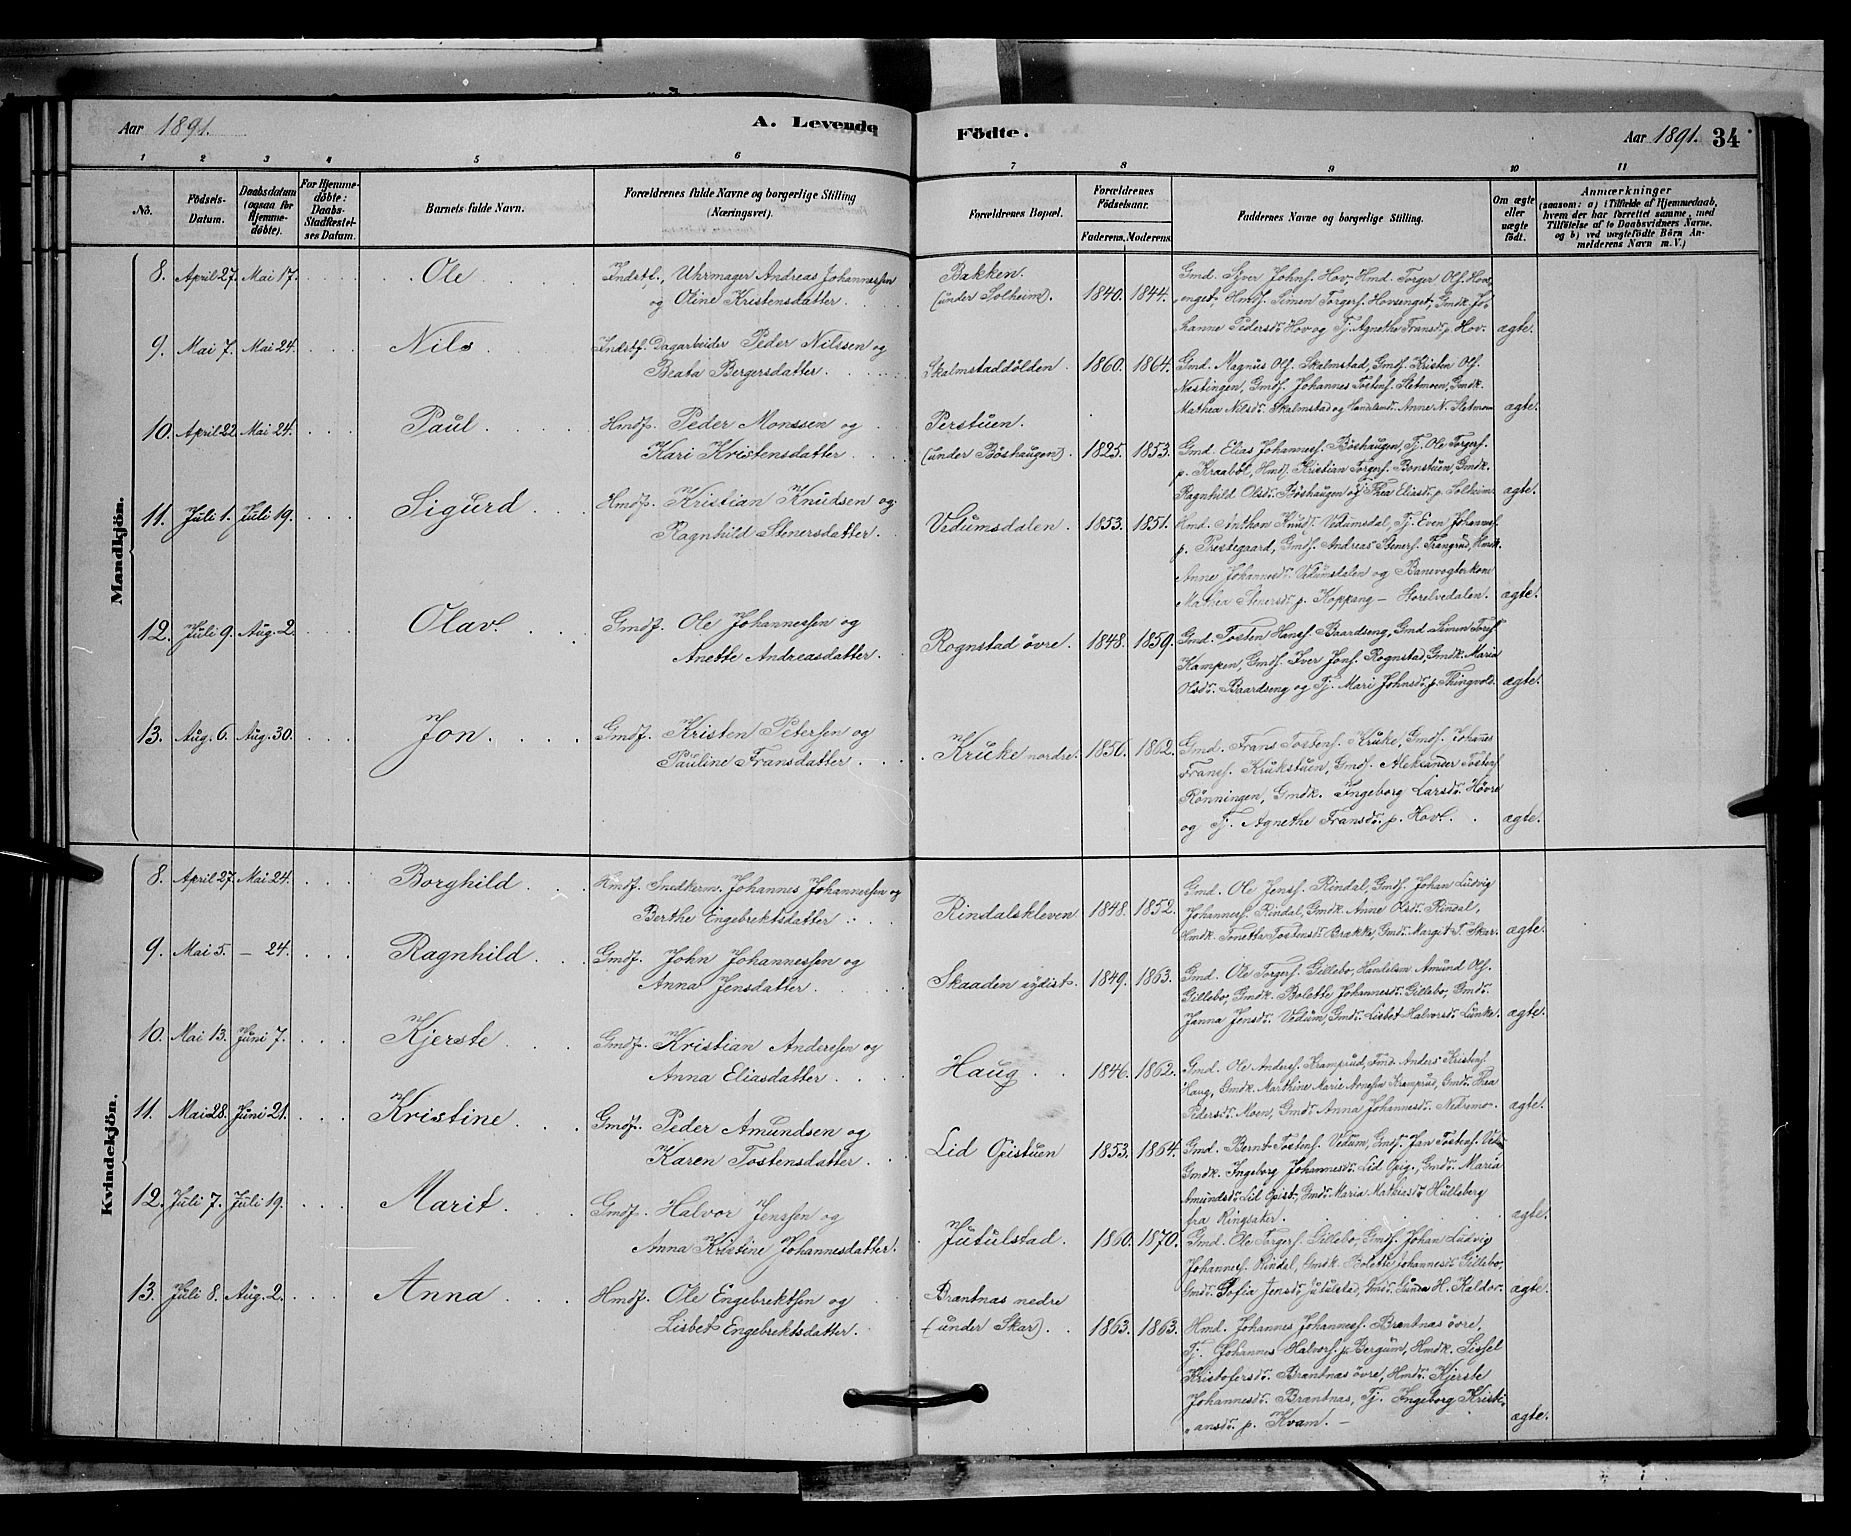 Aar 1891.
A. Levende Födte.
Aar 1891. 34
1 2 3 4 5 6 7 8 9 10 11
No.
Födsels-Datum.
Daabsdatum (ogsaa for Hjemme-döbte).
For Hjemme-döbte: Daabs-Stadfæstel-ses Datum.
Barnets fulde Navn.
Forældrenes fulde Navne og borgerlige Stilling (Næringsvei).
Forældrenes Bopæl.
Forældrenes Födselsaar.
Faderens. Moderens.
Faddernes Navne og borgerlige Stilling.
Om ægte eller uægte födt.
Anmærkninger
(saasom: a) i Tilfælde af Hjemmedaab, hvem der har forrettet samme, med Tilföielse af to Daabsvidners Navne. og b) ved uægtefödte Börn An-melderens Navn m. V.)
Mandkjön.
8. April 27. Mai 17. Ole Indstf., Uhrmager Andreas Johannessen
og Oline Kristensdatter.
Bakken.
(under Solheim). 1840. 1844.
Gmd. Syver Johnf. Hov, Hmd. Torger Olf. Hovs
enget, Hmdf. Simen Torgerf. Hovsenget, Gmdk. Jo-
hanne Pedersdr. Hov og Tj. Agnethe Fransdr. p. Hov. ægte.
9. Mai 7. Mai 24. Nils Indstf. Dagarbeider Peder Nilssen og
Beata Bergersdatter.
Skalmstaddölden. 1860. 1864.
Gmd. Magnus Olf. Skalmstad, Gmdf. Kristen Olf.
Næstingen, Gmdf. Johannes Tostenf. Sletmoen, Gmdk.
Mathea Nilsdr. Skalmstad og Handelsmd. Anne N. Sletmoen ægte.
10. April 22. Mai 24. Paul Hmdf. Peder Monssen og
Kari Kristensdatter
Perstuen.
(under Böshaugen). 1825. 1853.
Gmd. Elias Johannesf. Böshaugen, Tj. Ole Torgerf.
p. Kraaböl, Hmdf. Kristian Torgerf. Bonstuen, Gmdk.
Ragnhild Olsdr. Böshaugen og Tj. Thea Eliasdr. p. Solheim. ægte.
11. Juli 1. Juli 19. Sigurd Hmdf. Kristian Knudsen og
Ragnhild Stenersdatter.
Vedumsdalen. 1853. 1851.
Hmd. Anthon Knudf. Vedumsdal, Tj. Even Johannesf.
p. Prestegaard, Gmdf. Andreas Stenerf. Frangrud, Hmdk.
Anne Johannesdr. Vedumsdalen og Banevogterkone
Mathea Stenersdr. p. Koppang — Storelvedalen. ægte.
12. Juli 9. Aug. 2. Olav. Gmdf. Ole Johannessen og
Anette Andreasdatter.
Rognstad övre. 1848. 1859.
Gmd. Tosten Hansf. Baardseng, Gmd. Simen Toref.
Kampen, Gmdf. Iver Jonf. Rognstad, Gmdk. Maria
Olsdr. Baardseng og Tj. Mari Johnsdr. p. Thingvold. ægte.
13. Aug. 6. Aug. 30. Jon. Gmdf. Kristen Petersen og
Pauline Fransdatter
Kruke nordre. 1856. 1862.
Gmd. Frans Tostenf. Kruke, Gmdf. Johannes
Fransf. Krukstuen, Gmdf. Aleksander Tostenf.
Rönningen, Gmdk. Ingeborg Larsdr. Hövre
og Tj. Agnethe Fransdr. p. Hov. ægte.
Kvindekjön.
8. April 27. Mai 24. Borghild Hmdf. Snedkerm. Johannes Johannessen og
Berthe Engebrektsdatter
Rindalskleven 1848. 1852.
Gmd. Ole Jensf. Rindal, Gmdf. Johan Ludvig
Johannesf. Rindal, Gmdk. Anne Olsdr. Rindal,
Hmdk. Tonetta Tostensdr. Brække, Gmdr. Margit T. Skar. ægte.
9. Mai 5. — 24. Ragnhild Gmdf. John Johannessen og
Anna Jensdatter.
Skaaden sydist. 1849. 1863.
Gmd. Ole Torgerf. Gillebo, Handelsm. Amund Olf.
Gillebo, Gmdk. Bolette Johannesdr. Gillebo, Gmdr.
Janna Jensdr. Vedum, Gmdr. Lisbet Halvorsdr. Lunke. ægte.
10. Mai 13. Juni 7. Kjerste Gmdf. Kristian Anderssen og
Anna Eliasdatter.
Haug 1846. 1862.
Gmd. Ole Andersf. Kramprud, Fmd. Anders Kristenf.
Haug, Gmdk. Marthine Marie Arnesen Kramprud, Gmdr. Thea
Pedersdr. Moen, Gmdr. Anna Johannesdr. Nedremo. ægte.
11. Mai 28. Juni 21. Kristine Gmdf. Peder Amundsen og
Karen Tostensdatter.
Lid Opistuen 1853. 1864.
Gmd. Bernt Tostenf. Vedum, Gmdf. Jan Tostenf. Vedum
Gmdk. Ingeborg Johannesdr. Lid Opig., Gmdr. Maria
Amundsdr. Lid Opist., Gmdr. Maria Mathiasdr. Hulleberg
fra Ringsaker. ægte.
12. Juli 7. Juli 19. Marit Gmdf. Halvor Jenssen og
Anna Kristine Johannesdatter.
Jutulstad. 1860. 1870.
Gmd. Ole Torgerf. Gillebo, Gmdf. Johan Ludvig
Johannesf. Rindal, Gmdk. Bolette Johannesdr. Gillebo,
Gmdr. Sofia Jensdr. Jutulstad, Gmdr. Gunda H. Kaldor. ægte.
13. Juli 8. Aug. 2. Anna Hmdf. Ole Engebrektsen og
Lisbet Engebrektsdatter.
Bræntnas nedre
(under Skar). 1863. 1863.
Hmd. Johannes Johannesf. Bræntnas övre,
Tj. Johannes Halvorf. p. Bergum, Hmdk. Sissel
Kristofersdr. Bræntnas övre, Hmdr. Kjerste
Johannesdr. Bræntnas, Tj. Ingeborg Kristi-
ansdr. p. Kvam. — ægte.